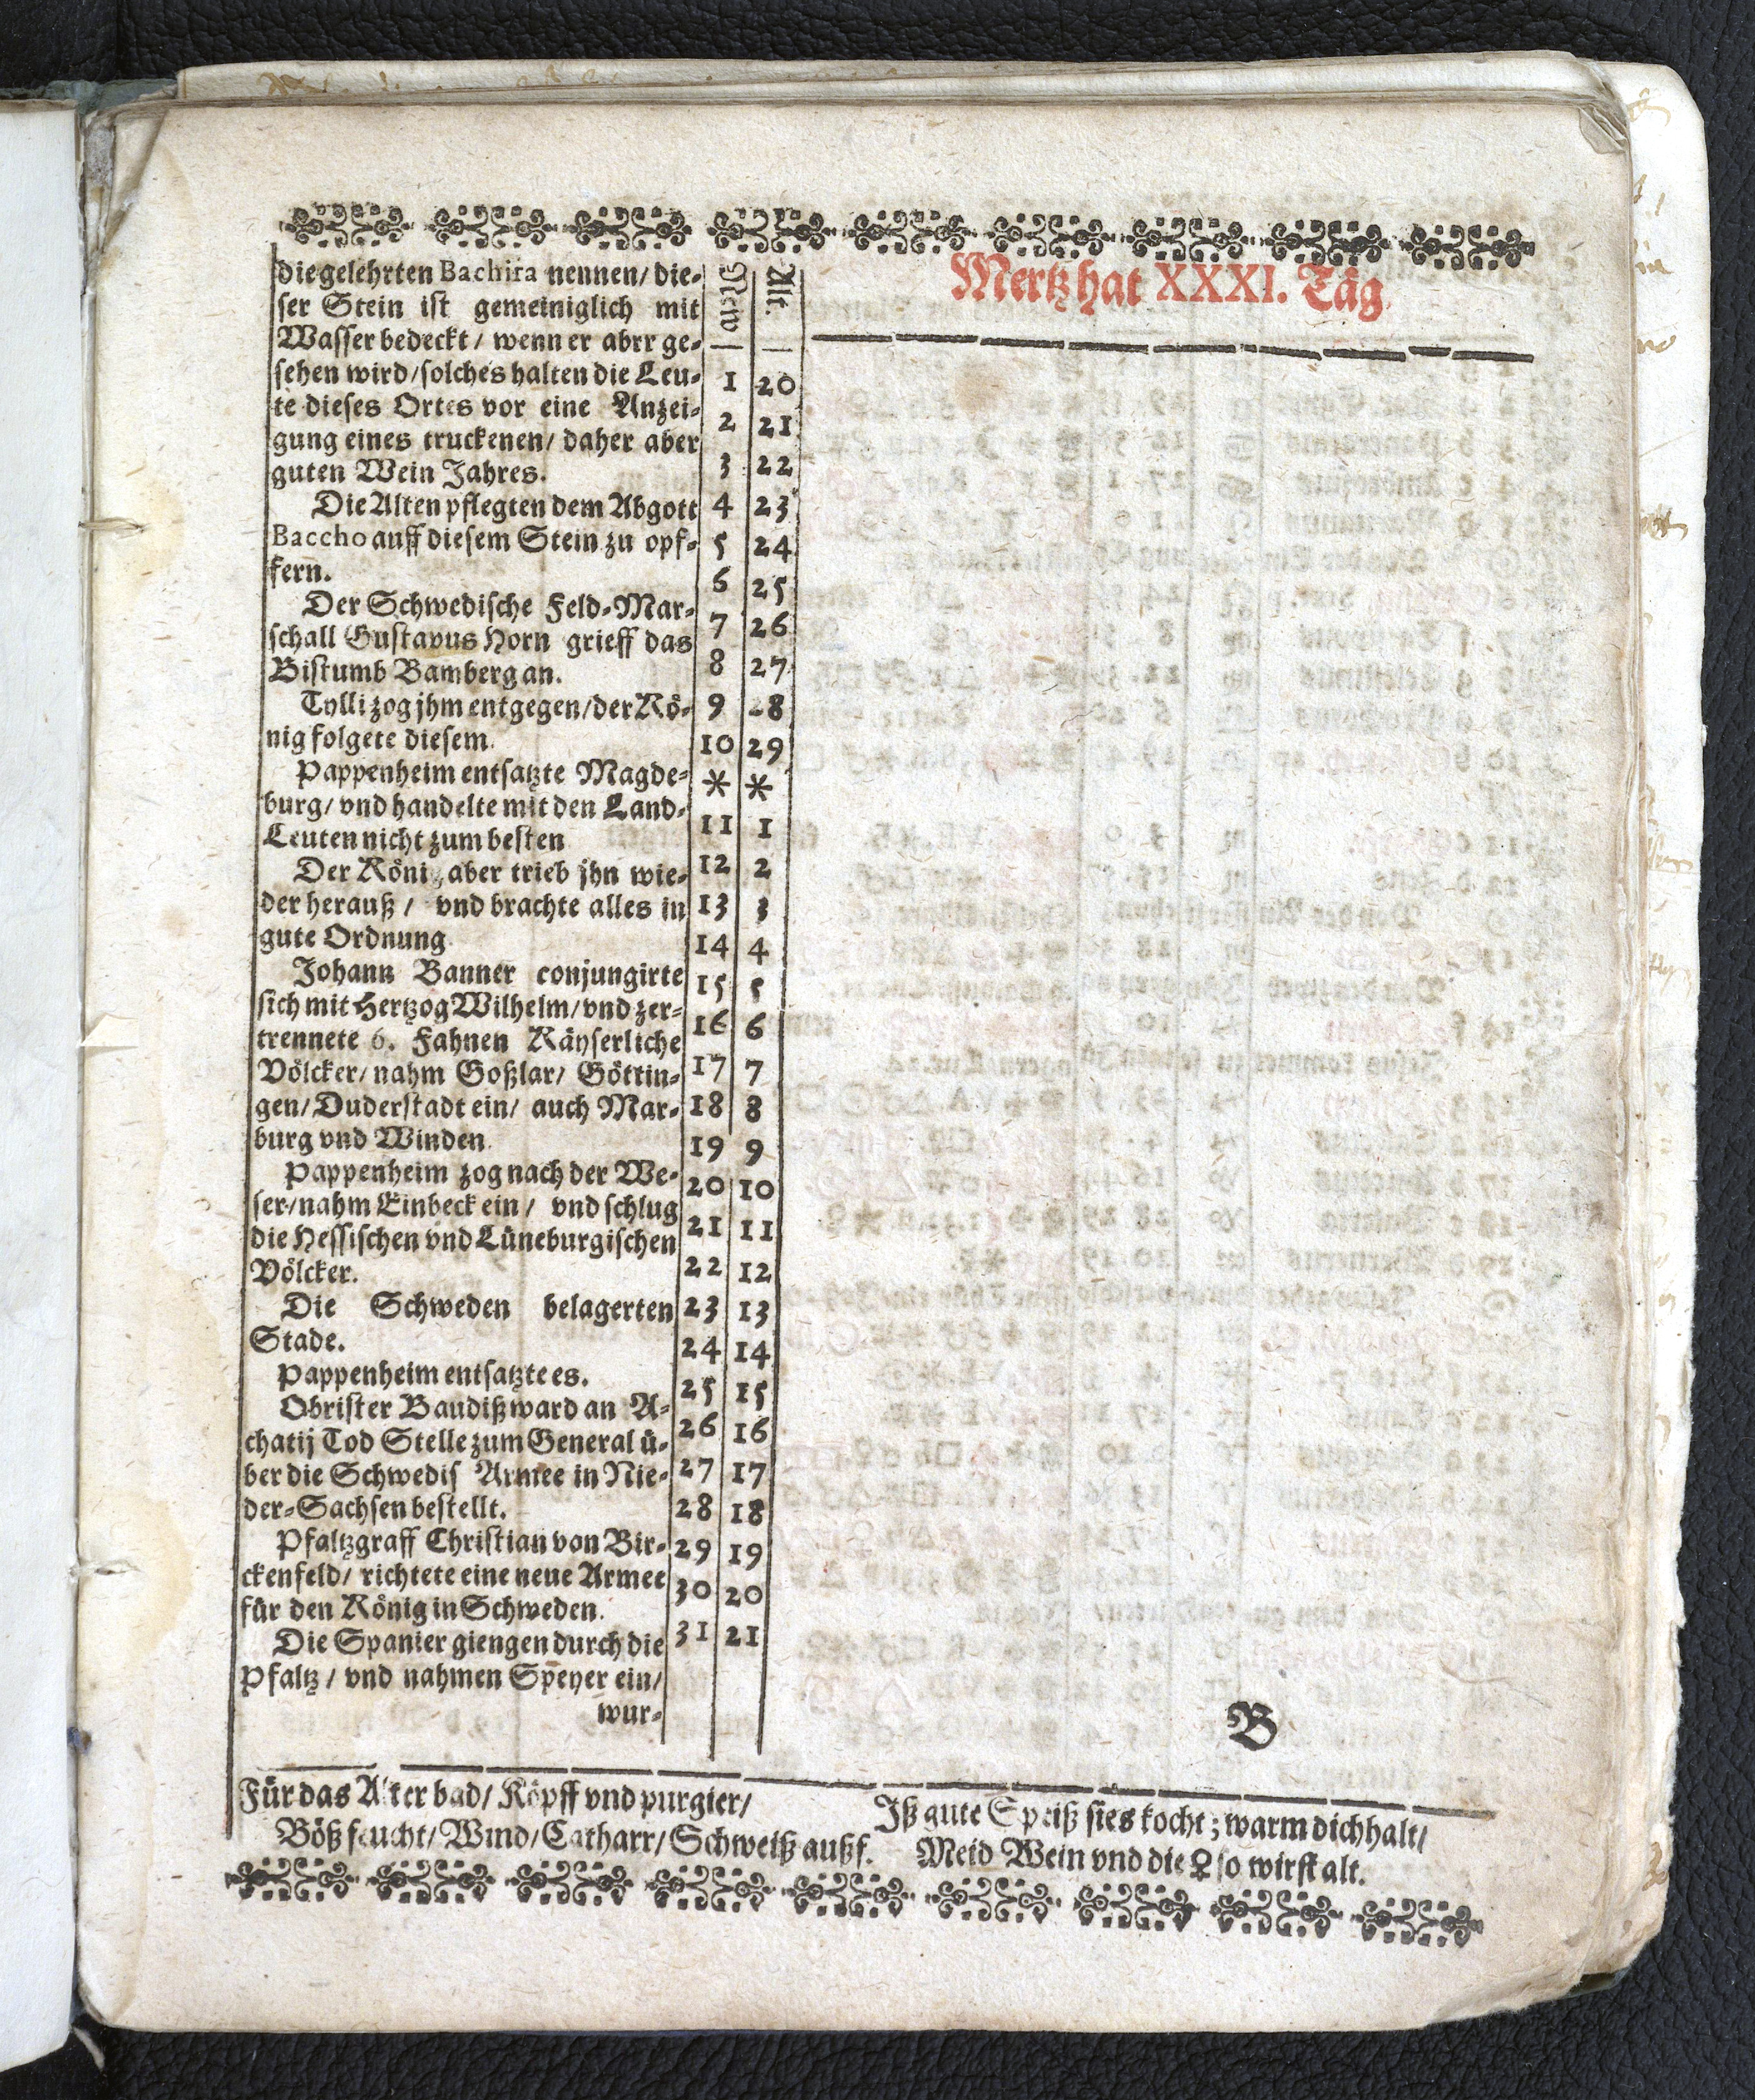 die gelehrten Bachira nennen/ die-
ser Stein ist gemeiniglich mit
Wasser bedeckt / wenn er abrr ge-
sehen wird/ solches halten die Leu-
te dieses Ortes vor eine Anzei-
gung eines truckenen/ daher aber
guten Wein Jahres.
Die Alten pflegten dem Abgott
Baccho auff diesem Stein zu opf-
fern.
Der Schwedische Feld-Mar-
schall Gustavus Horn grieff das
Bistumb Bamberg an.
Tylli zog jhm entgegen/ der Kö-
nig folgete diesem.
Pappenheim entsatzte Magde-
burg/ vnd handelte mit den Land-
Leuten nicht zum besten
Der König aber trieb jhn wie-
der herauß / vnd brachte alles in
gute Ordnung
Johann Banner conjungirte
sich mit Hertzog Wilhelm/ vnd zer-
trennete 6. Fahnen Käyserliche
Völcker/ nahm Goßlar/ Göttin-
gen/ Duderstadt ein/ auch Mar-
burg vnd Winden
Pappenheim zog nach der We-
ser/ nahm Einbeck ein / vnd schlug
die Hessischen vnd Lüneburgischen
Völcker.
Die Schweden belagerten
Stade.
Pappenheim entsatzte es.
Obrister Baudiß ward an A-
chatij Tod Stelle zum General ü-
ber die Schwedis Armee in Nie-
der-Sachsen bestellt.
Pfaltzgraff Christian von Bir-
ckenfeld/ richtete eine neue Armee
für den König in Schweden.
Die Spanier giengen durch die
Pfaltz / vnd nahmen Speyer ein/
wur-
New Alt.
1 20
2 21
3 22
4 23
5 24
6 25
7 26
8 27
9 28
10 29
* *
11 1
12 2
13 3
14 4
15 5
16 6
17 7
18 8
19 9
20 10
21 11
22 12
23 13
24 14
25 15
26 16
27 17
28 18
29 19
30 20
31 21
Mertz hat XXXI. Täg
B
Für das Alter bad/ Köpff vnd purgier/
Böß feucht/ Wind/ Catharr/ Schweiß außf.
Iß gute Speiß sies kocht; warm dich halt/
Meid Wein vnd die ♀ so wirst alt.